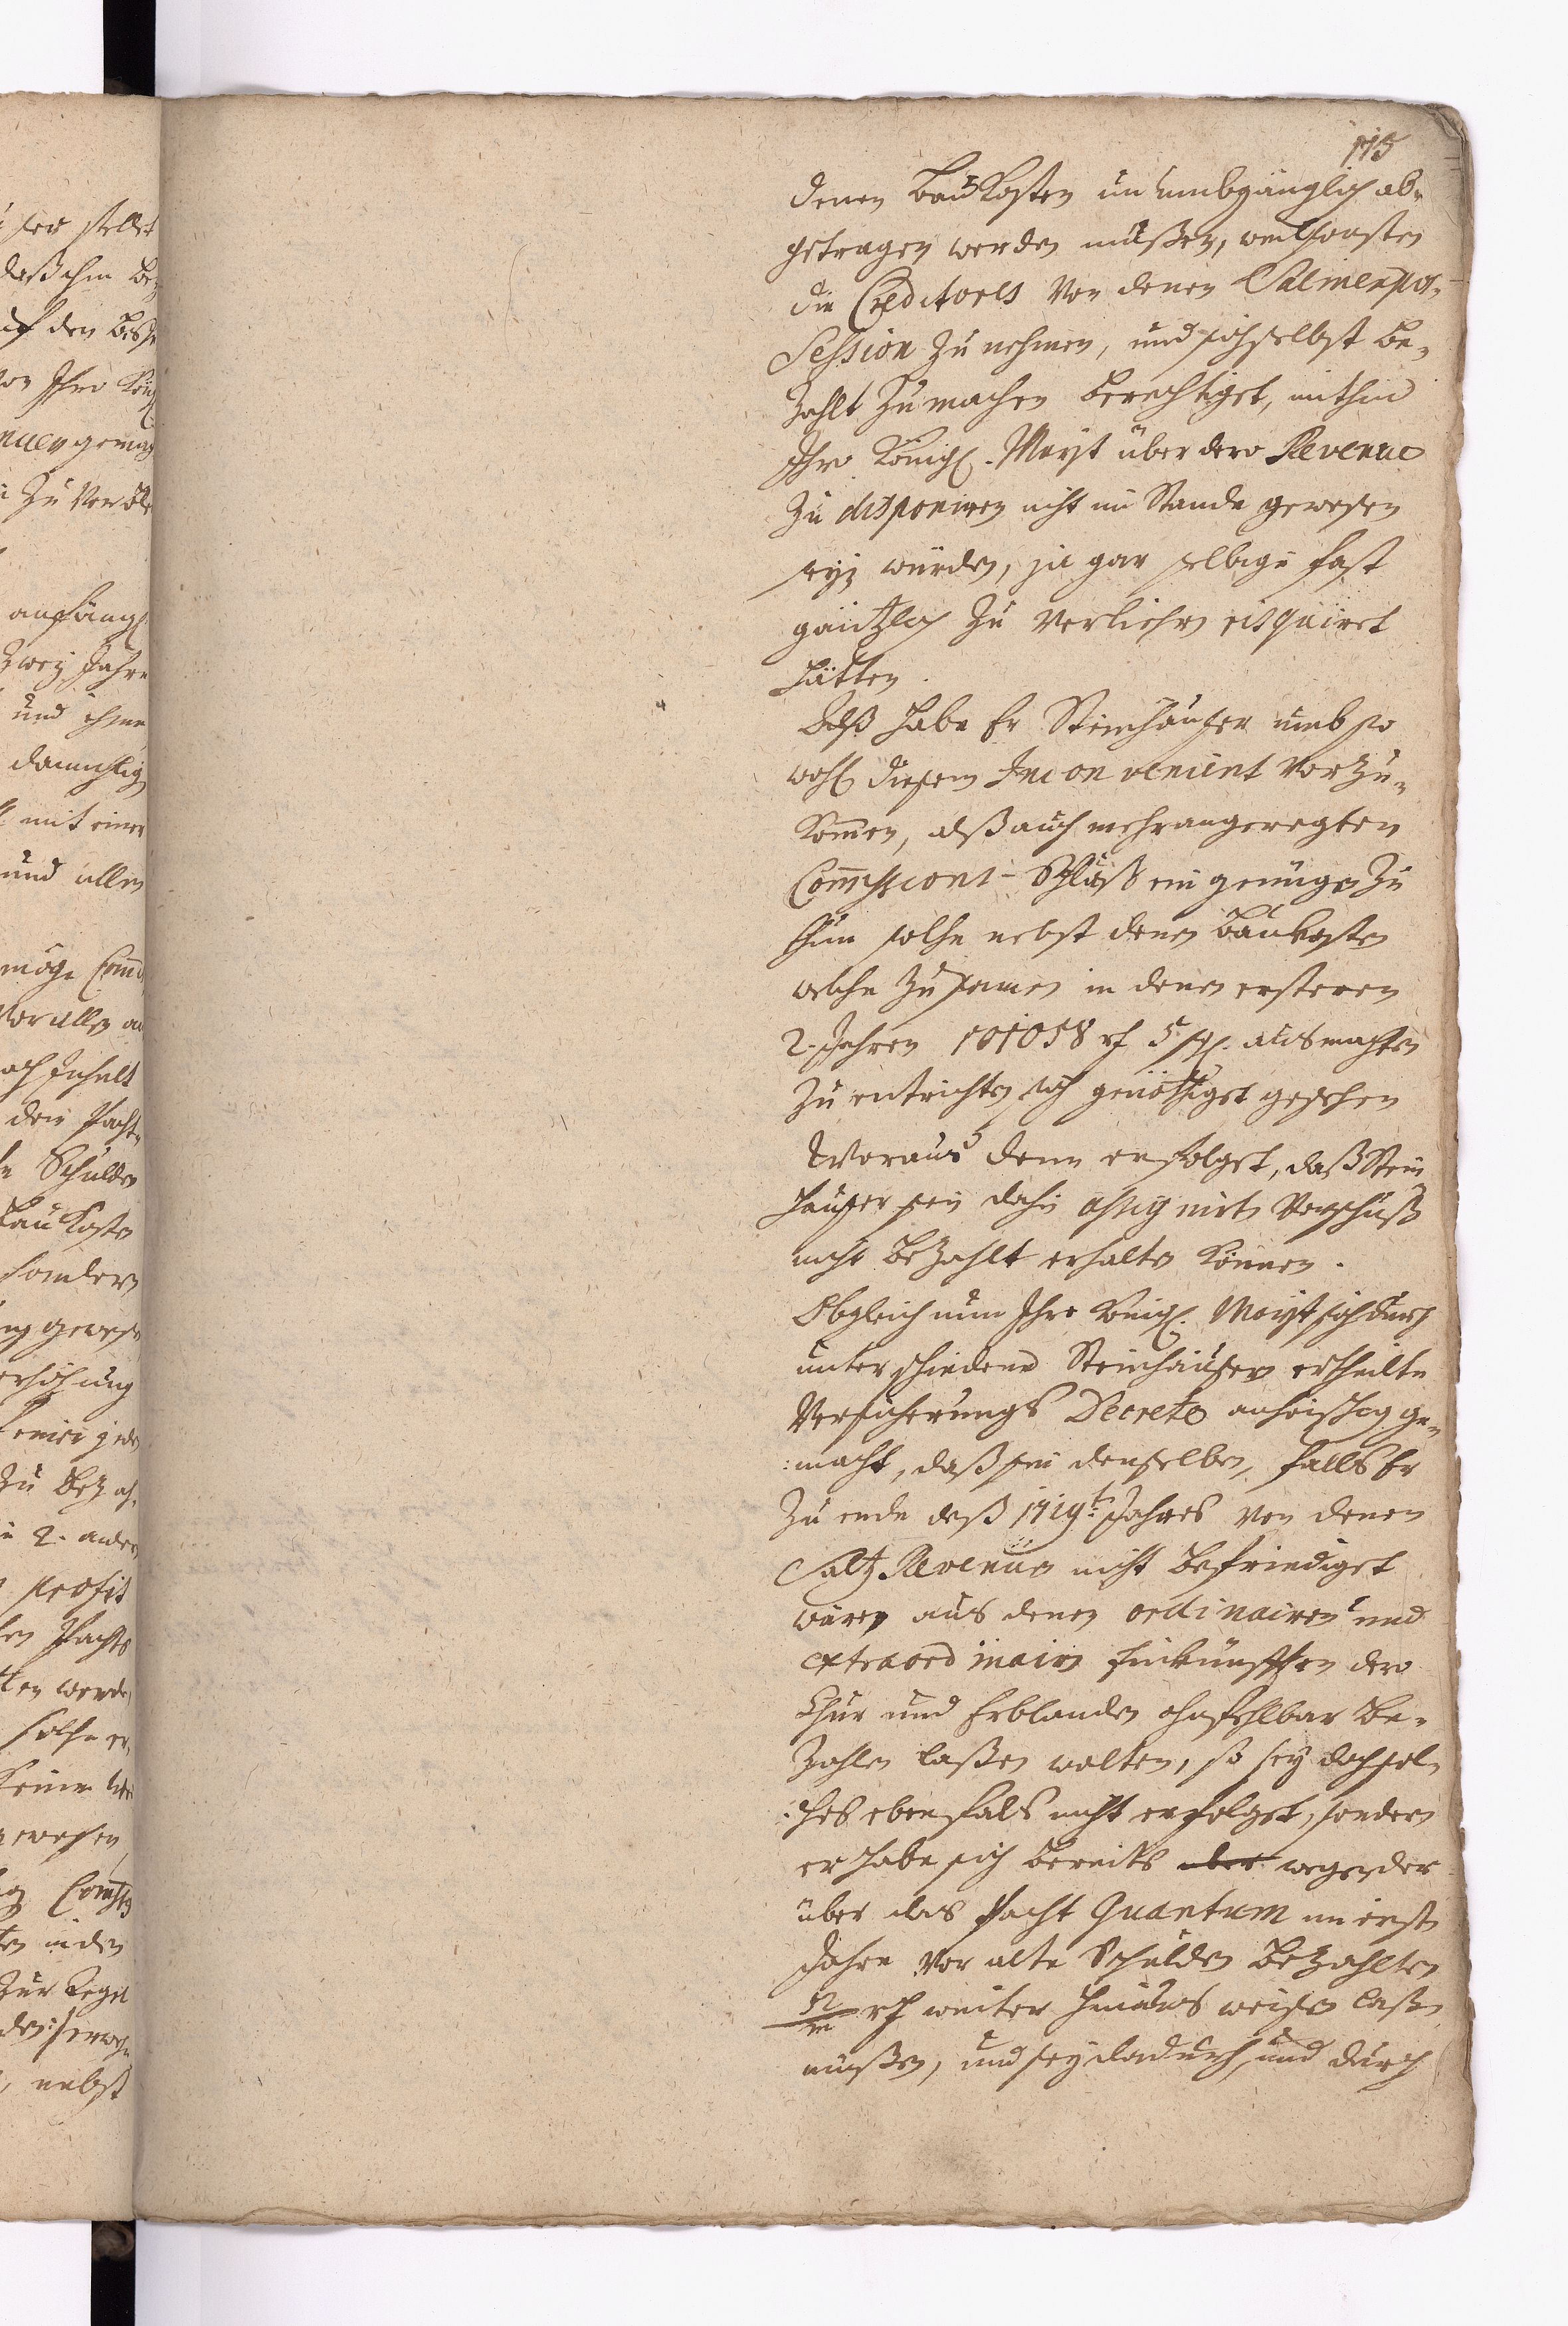 175
denen Bau Kosten un umbgänglich ab-
getragen werden müßen, weil sonsten
die Creditores von denen Salinen pos-
session zu nehmen, und sich selbst be-
zahlt zu machen berechtiget, mithin
Ihro Königl. Mayt über dero Revenue
zu disponiren nicht im Stande gewesen
seyn würden, ja gar selbige fast
gäntzlich zu verliehren risquiret
hätten.
Alß habe Er Steinhäuser umb so
wohl diesem Inconvenient vorzu-
kommen, alß auch mehrangeregten
Commissions-Schluß ein genüge zu
thun solche nebst denen Baukosten
welche zusamen in denen ersteren
2. Jahren 101058 rf 5 gl. ausmachten
zu entrichten sich genöthiget gesehen
Woraus denn erfolget, daß Stein
häuser sein dahin assignirten Vorschuß
nicht bezahlt erhalten können.
Obgleich nun Ihro Königl. Mayt sich durch
unterschiedene Steinhäusern ertheilte
Versicherungs Decreta anheischig ge-
:macht, daß sie denselben, falls Er
zu ende deß 1719t. Jahres von denen
Saltz Revenüen nicht befriediget
wären aus denen ordinairen und
extraordinairen Einkünfften dero
Chur und Erblanden ohnfehlbar be-
zahlen laßen wolten, so sey doch sol-
:ches ebenfals nicht erfolget, sondern
er habe sich bereits wegen der
über das Pacht Quantum im ersten
Jahre vor alte Schulden bezahlten
rf weiter hinaus weisen laßen
müßen, und sey dadurch, und durch
und ihme
mit einer
und allen
nach Inhalt
Schulden
Bau Kosten
sondern
erhöhung
profit
nebst